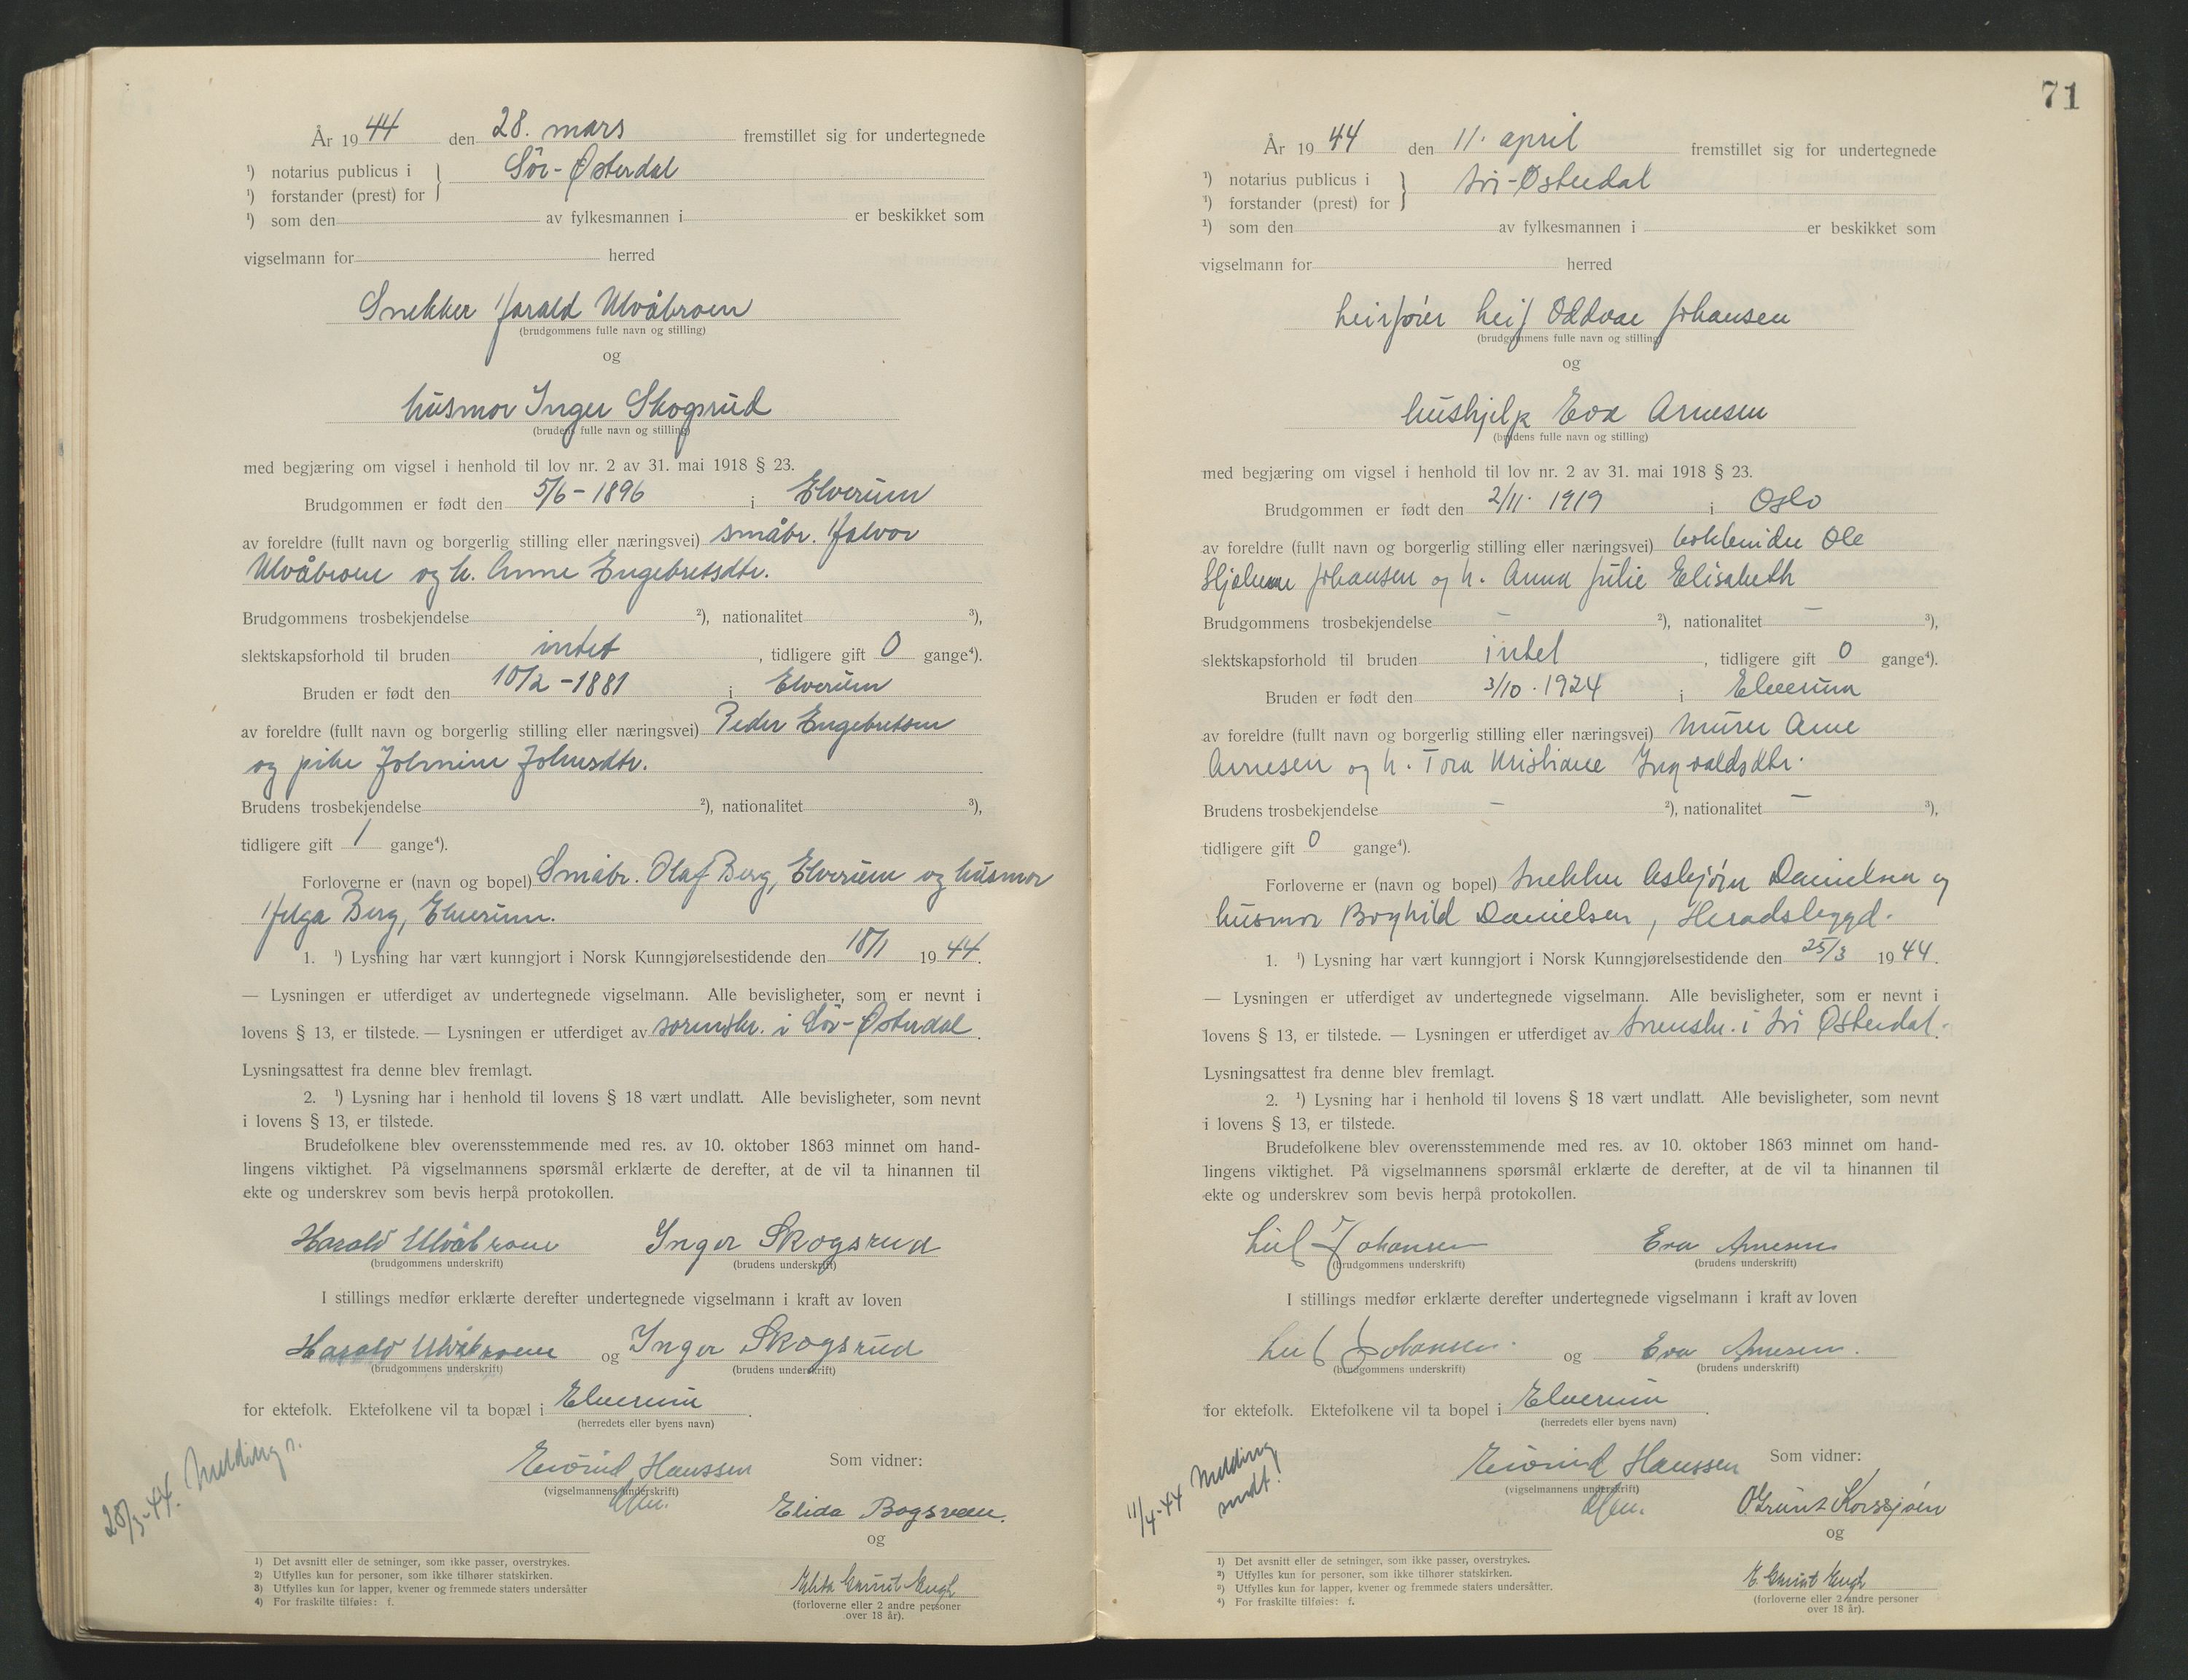 År 1944 den 28. mars fremstillet sig for undertegnede
¹) notarius publicus i } Sör-Østerdal
¹) forstander (prest) for
¹) som den av fylkesmannen i er beskikket som
vigselmann for herred
Snekker Harald Ulvåbroen
(brudgommens fulle navn og stilling)
og
husmor Inger Skogsrud
(brudens fulle navn og stilling)
med begjæring om vigsel i henhold til lov nr. 2 av 31. mai 1918 § 23.
Brudgommen er født den 5/6-1896 i Elverum
av foreldre (fullt navn og borgerlig stilling eller næringsvei) småbr. Halvor
Ulvåbroen og h. Anne Engebretsdtr.
Brudgommens trosbekjendelse ²), nationalitet ³),
slektskapsforhold til bruden intet, tidligere gift 0 gange⁴).
Bruden er født den 10/2-1881 i Elverum
av foreldre (fullt navn og borgerlig stilling eller næringsvei) Peder Engebretsen
og pike Johnine Johnsdtr.
Brudens trosbekjendelse ²), nationalitet ³),
tidligere gift 1 gange⁴).
Forloverne er (navn og bopel) Småbr. Olaf Berg, Elverum og husmor
Helga Berg, Elverum.
1. ¹) Lysning har vært kunngjort i Norsk Kunngjørelsestidende den 18/1 1944.
— Lysningen er utferdiget av undertegnede vigselmann. Alle bevisligheter, som er nevnt i
lovens § 13, er tilstede. — Lysningen er utferdiget av sorenskr. i Sör-Østerdal.
Lysningsattest fra denne blev fremlagt.
2. ¹) Lysning har i henhold til lovens § 18 vært undlatt. Alle bevisligheter, som nevnt
i lovens § 13, er tilstede.
Brudefolkene blev overensstemmende med res. av 10. oktober 1863 minnet om hand-
lingens viktighet. På vigselmannens spørsmål erklærte de derefter, at de vil ta hinannen til
ekte og underskrev som bevis herpå protokollen.
Harald Ulvåbroen Inger Skogsrud
(brudgommens underskrift) (brudens underskrift)
I stillings medfør erklærte derefter undertegnede vigselmann i kraft av loven
Harald Ulvåbroen og Inger Skogsrud
(brudgommens underskrift) (brudens underskrift)
for ektefolk. Ektefolkene vil ta bopæl i Elverum.
(herredets eller byens navn)
28/3-44. Melding s.
Eivind Hanssen Som vidner:
(vigselmannens underskrift)
Elida Bogsveen.
og
Elida Grundt Engh
(forloverne eller 2 andre personer
over 18 år).
1) Det avsnitt eller de setninger, som ikke passer, overstrykes.
2) Utfylles kun for personer, som ikke tilhører statskirken.
3) Utfylles kun for lapper, kvener og fremmede staters undersåtter
4) For fraskilte tilføies: f.
71
År 1944 den 11. april fremstillet sig for undertegnede
¹) notarius publicus i } Sör-Østerdal
¹) forstander (prest) for
¹) som den av fylkesmannen i er beskikket som
vigselmann for herred
Leirfører Leif Oddvar Johansen
(brudgommens fulle navn og stilling)
og
hushjelp Eva Arnesen
(brudens fulle navn og stilling)
med begjæring om vigsel i henhold til lov nr. 2 av 31. mai 1918 § 23.
Brudgommen er født den 2/11. 1919 i Oslo
av foreldre (fullt navn og borgerlig stilling eller næringsvei) bokbinder Ole
Hjalmar Johansen og h. Anna Julie Elisabeth
Brudgommens trosbekjendelse – ²), nationalitet – ³),
slektskapsforhold til bruden intet, tidligere gift 0 gange⁴).
Bruden er født den 3/10. 1924 i Elverum
av foreldre (fullt navn og borgerlig stilling eller næringsvei) murer Arne
Arnesen og h. Tora Kristiane Ingvaldsdtr.
Brudens trosbekjendelse – ²), nationalitet – ³),
tidligere gift 0 gange⁴).
Forloverne er (navn og bopel) Snekker Asbjørn Danielsen og
husmor Borghild Danielsen, Heradsbygd.
1. ¹) Lysning har vært kunngjort i Norsk Kunngjørelsestidende den 25/3 1944.
— Lysningen er utferdiget av undertegnede vigselmann. Alle bevisligheter, som er nevnt i
lovens § 13, er tilstede. — Lysningen er utferdiget av sorenskr. i Sör Østerdal.
Lysningsattest fra denne blev fremlagt.
2. ¹) Lysning har i henhold til lovens § 18 vært undlatt. Alle bevisligheter, som nevnt
i lovens § 13, er tilstede.
Brudefolkene blev overensstemmende med res. av 10. oktober 1863 minnet om hand-
lingens viktighet. På vigselmannens spørsmål erklærte de derefter, at de vil ta hinannen til
ekte og underskrev som bevis herpå protokollen.
Leif Johansen Eva Arnesen
(brudgommens underskrift) (brudens underskrift)
I stillings medfør erklærte derefter undertegnede vigselmann i kraft av loven
Leif Johansen og Eva Arnesen.
(brudgommens underskrift) (brudens underskrift)
for ektefolk. Ektefolkene vil ta bopel i Elverum.
(herredets eller byens navn)
11/4-44 Melding
sendt!
Eivind Hanssen Som vidner:
(vigselmannens underskrift)
O. Grundt Korssjøen
og
E. Grundt Engh
(forloverne eller 2 andre personer
over 18 år).
¹) Det avsnitt eller de setninger, som ikke passer, overstrykes.
²) Utfylles kun for personer, som ikke tilhører statskirken.
³) Utfylles kun for lapper, kvener og fremmede staters undersåtter.
⁴) For fraskilte tilføies: f.